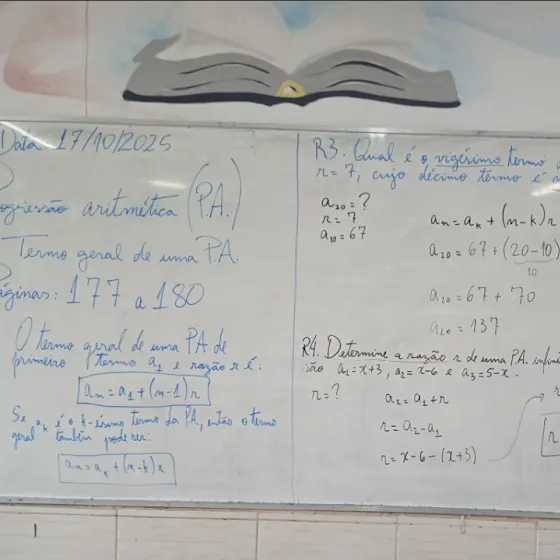 Data: 17/10/2025
ogressão aritmética (P.A.)
Termo geral de uma PA.
áginas: 177 a 180
O termo geral de uma PA de
primeiro termo a₁ e razão r é:
aₙ = a₁ + (n-1)r
Se aₖ é o k-ésimo termo da PA, então o termo
geral também pode ser:
aₙ = aₖ + (n-k)r
R3. Qual é o vigésimo termo d
r = 7, cujo décimo termo é a
a₂₀ = ?
r = 7
a₁₀ = 67
aₙ = aₖ + (n-k)r
a₂₀ = 67 + (20-10)
10
a₂₀ = 67 + 70
a₂₀ = 137
R4. Determine a razão r de uma P.A. infini
são a₁ = x+3, a₂ = x-6 e a₃ = 5-x.
r = ?
a₂ = a₁ + r
r = a₂ - a₁
r = x - 6 - (x+3)
r
r